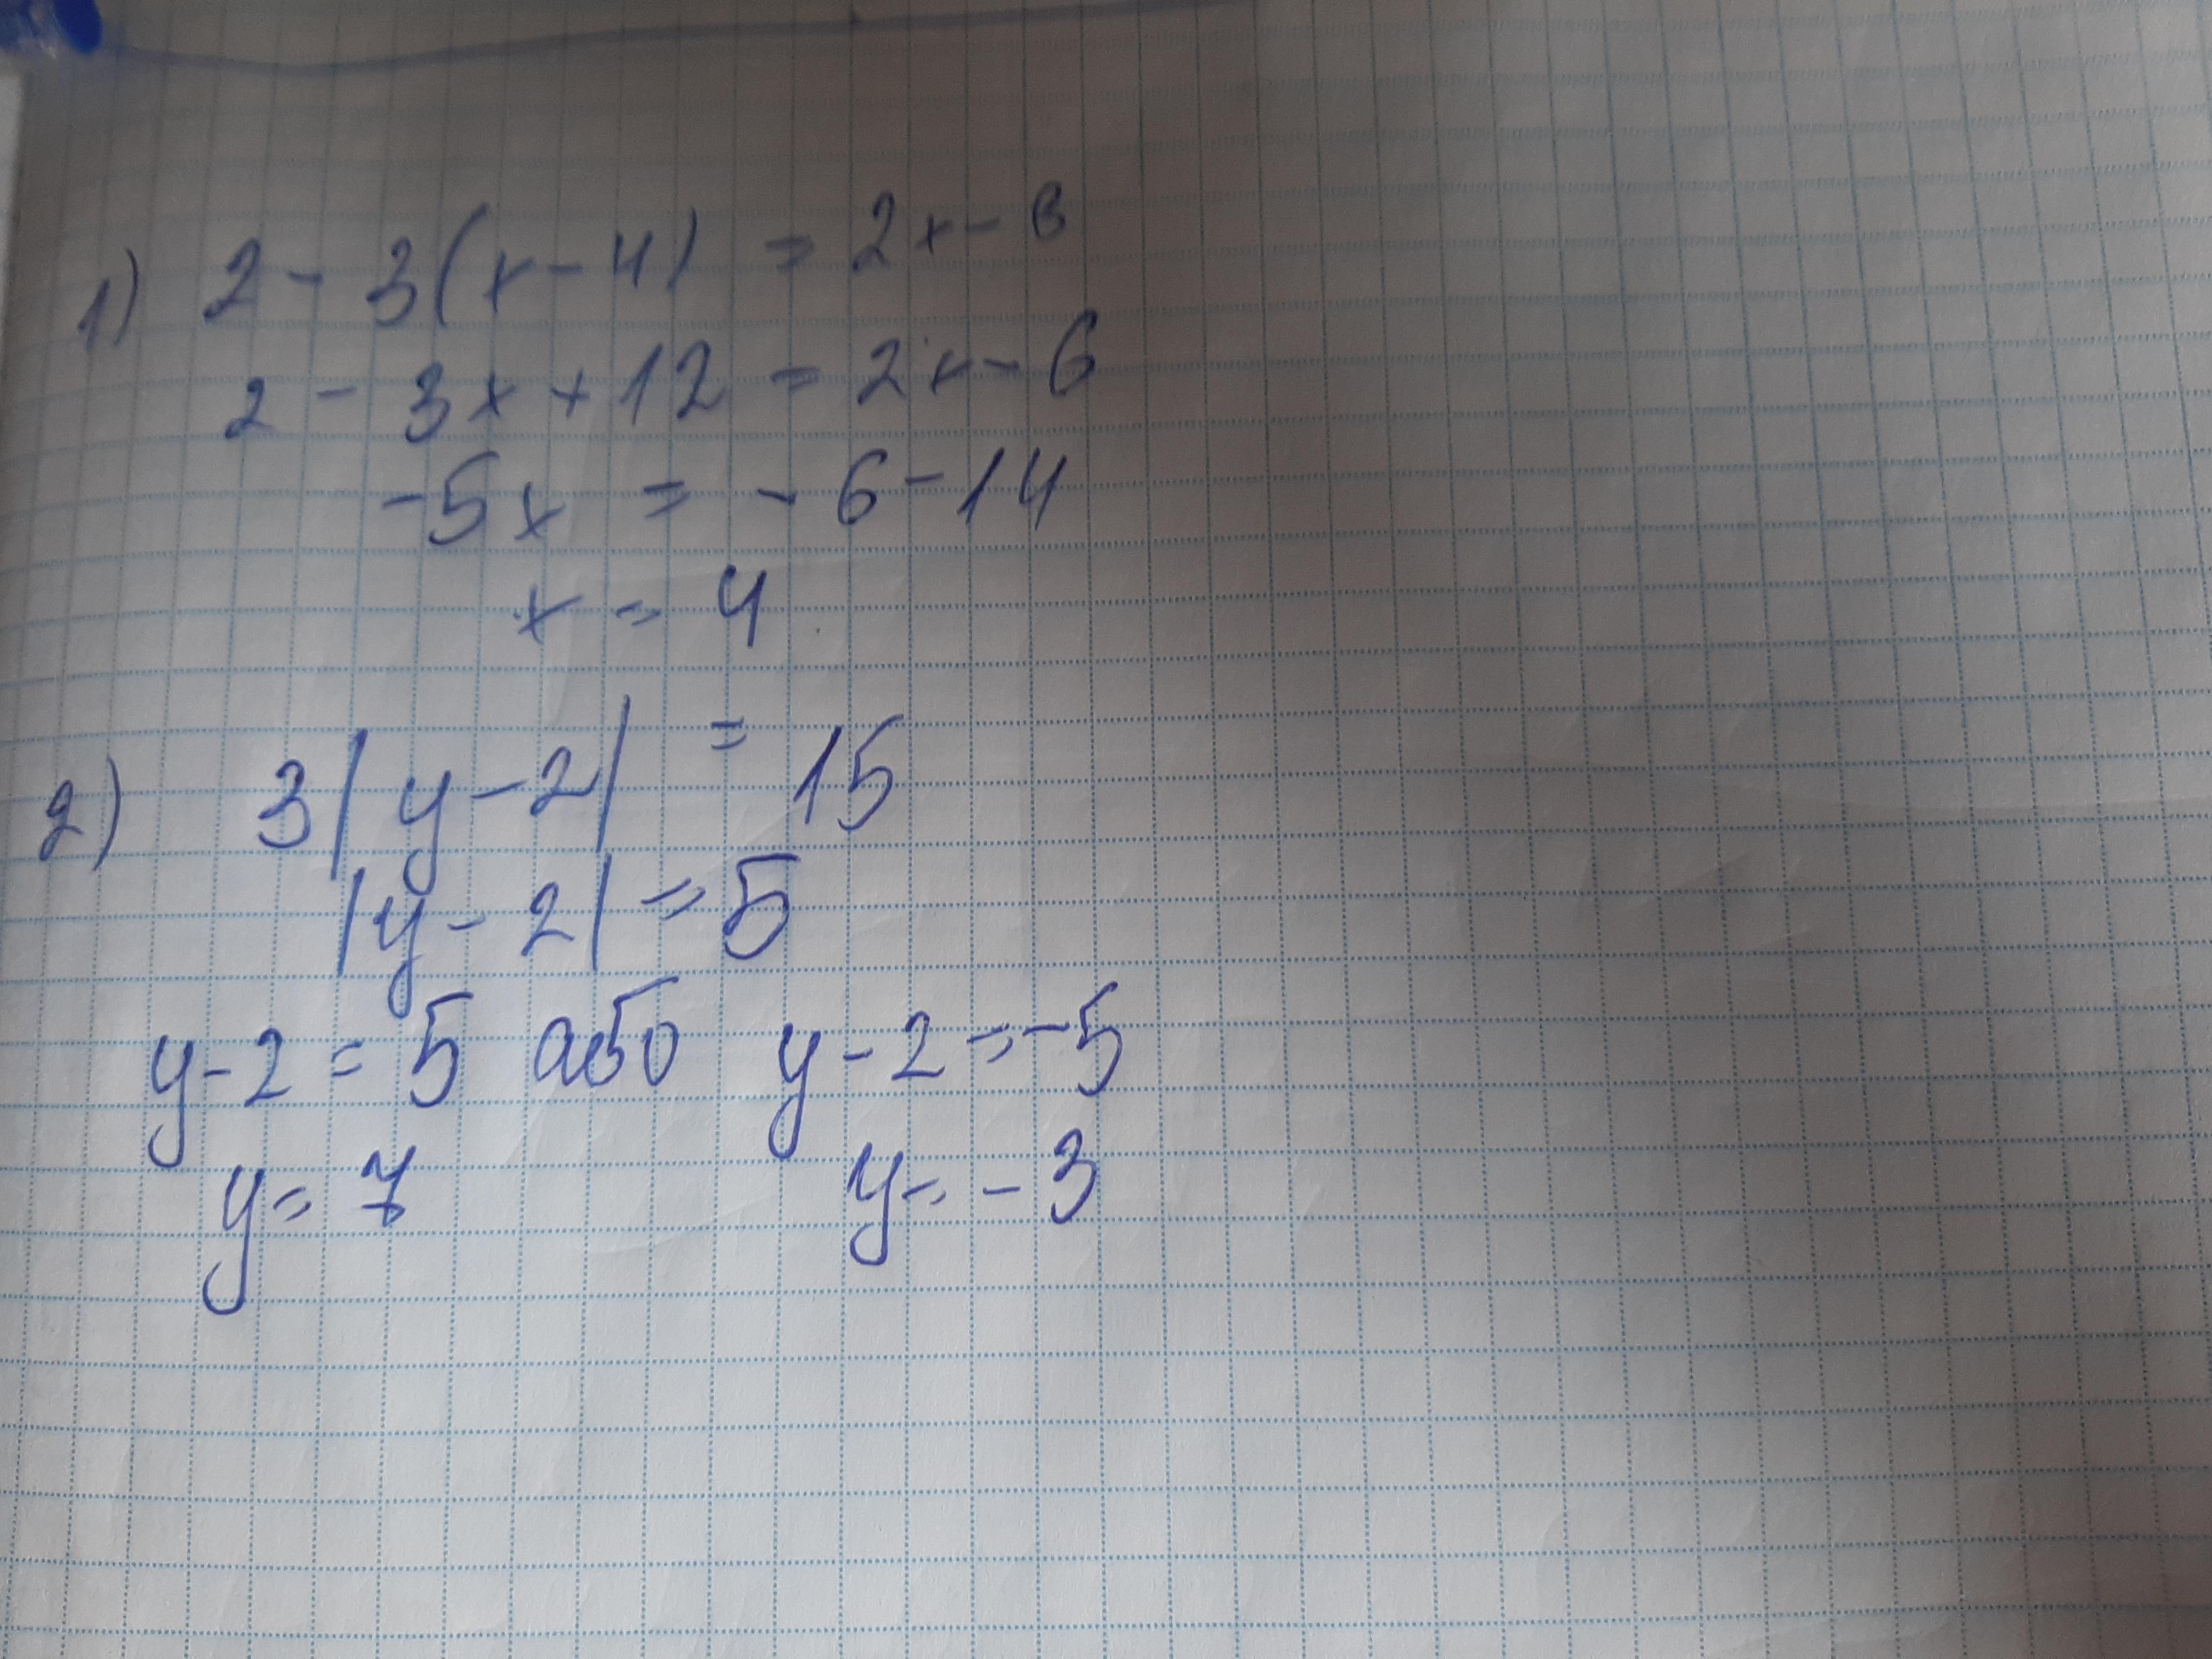 1) 2 - 3(x - 4) = 2x - 6
2 - 3x + 12 = 2x - 6
-5x = - 6 - 14
x = 4
2) 3|y - 2| = 15
|y - 2| = 5
y - 2 = 5 або y - 2 = -5
y = 7 y = - 3